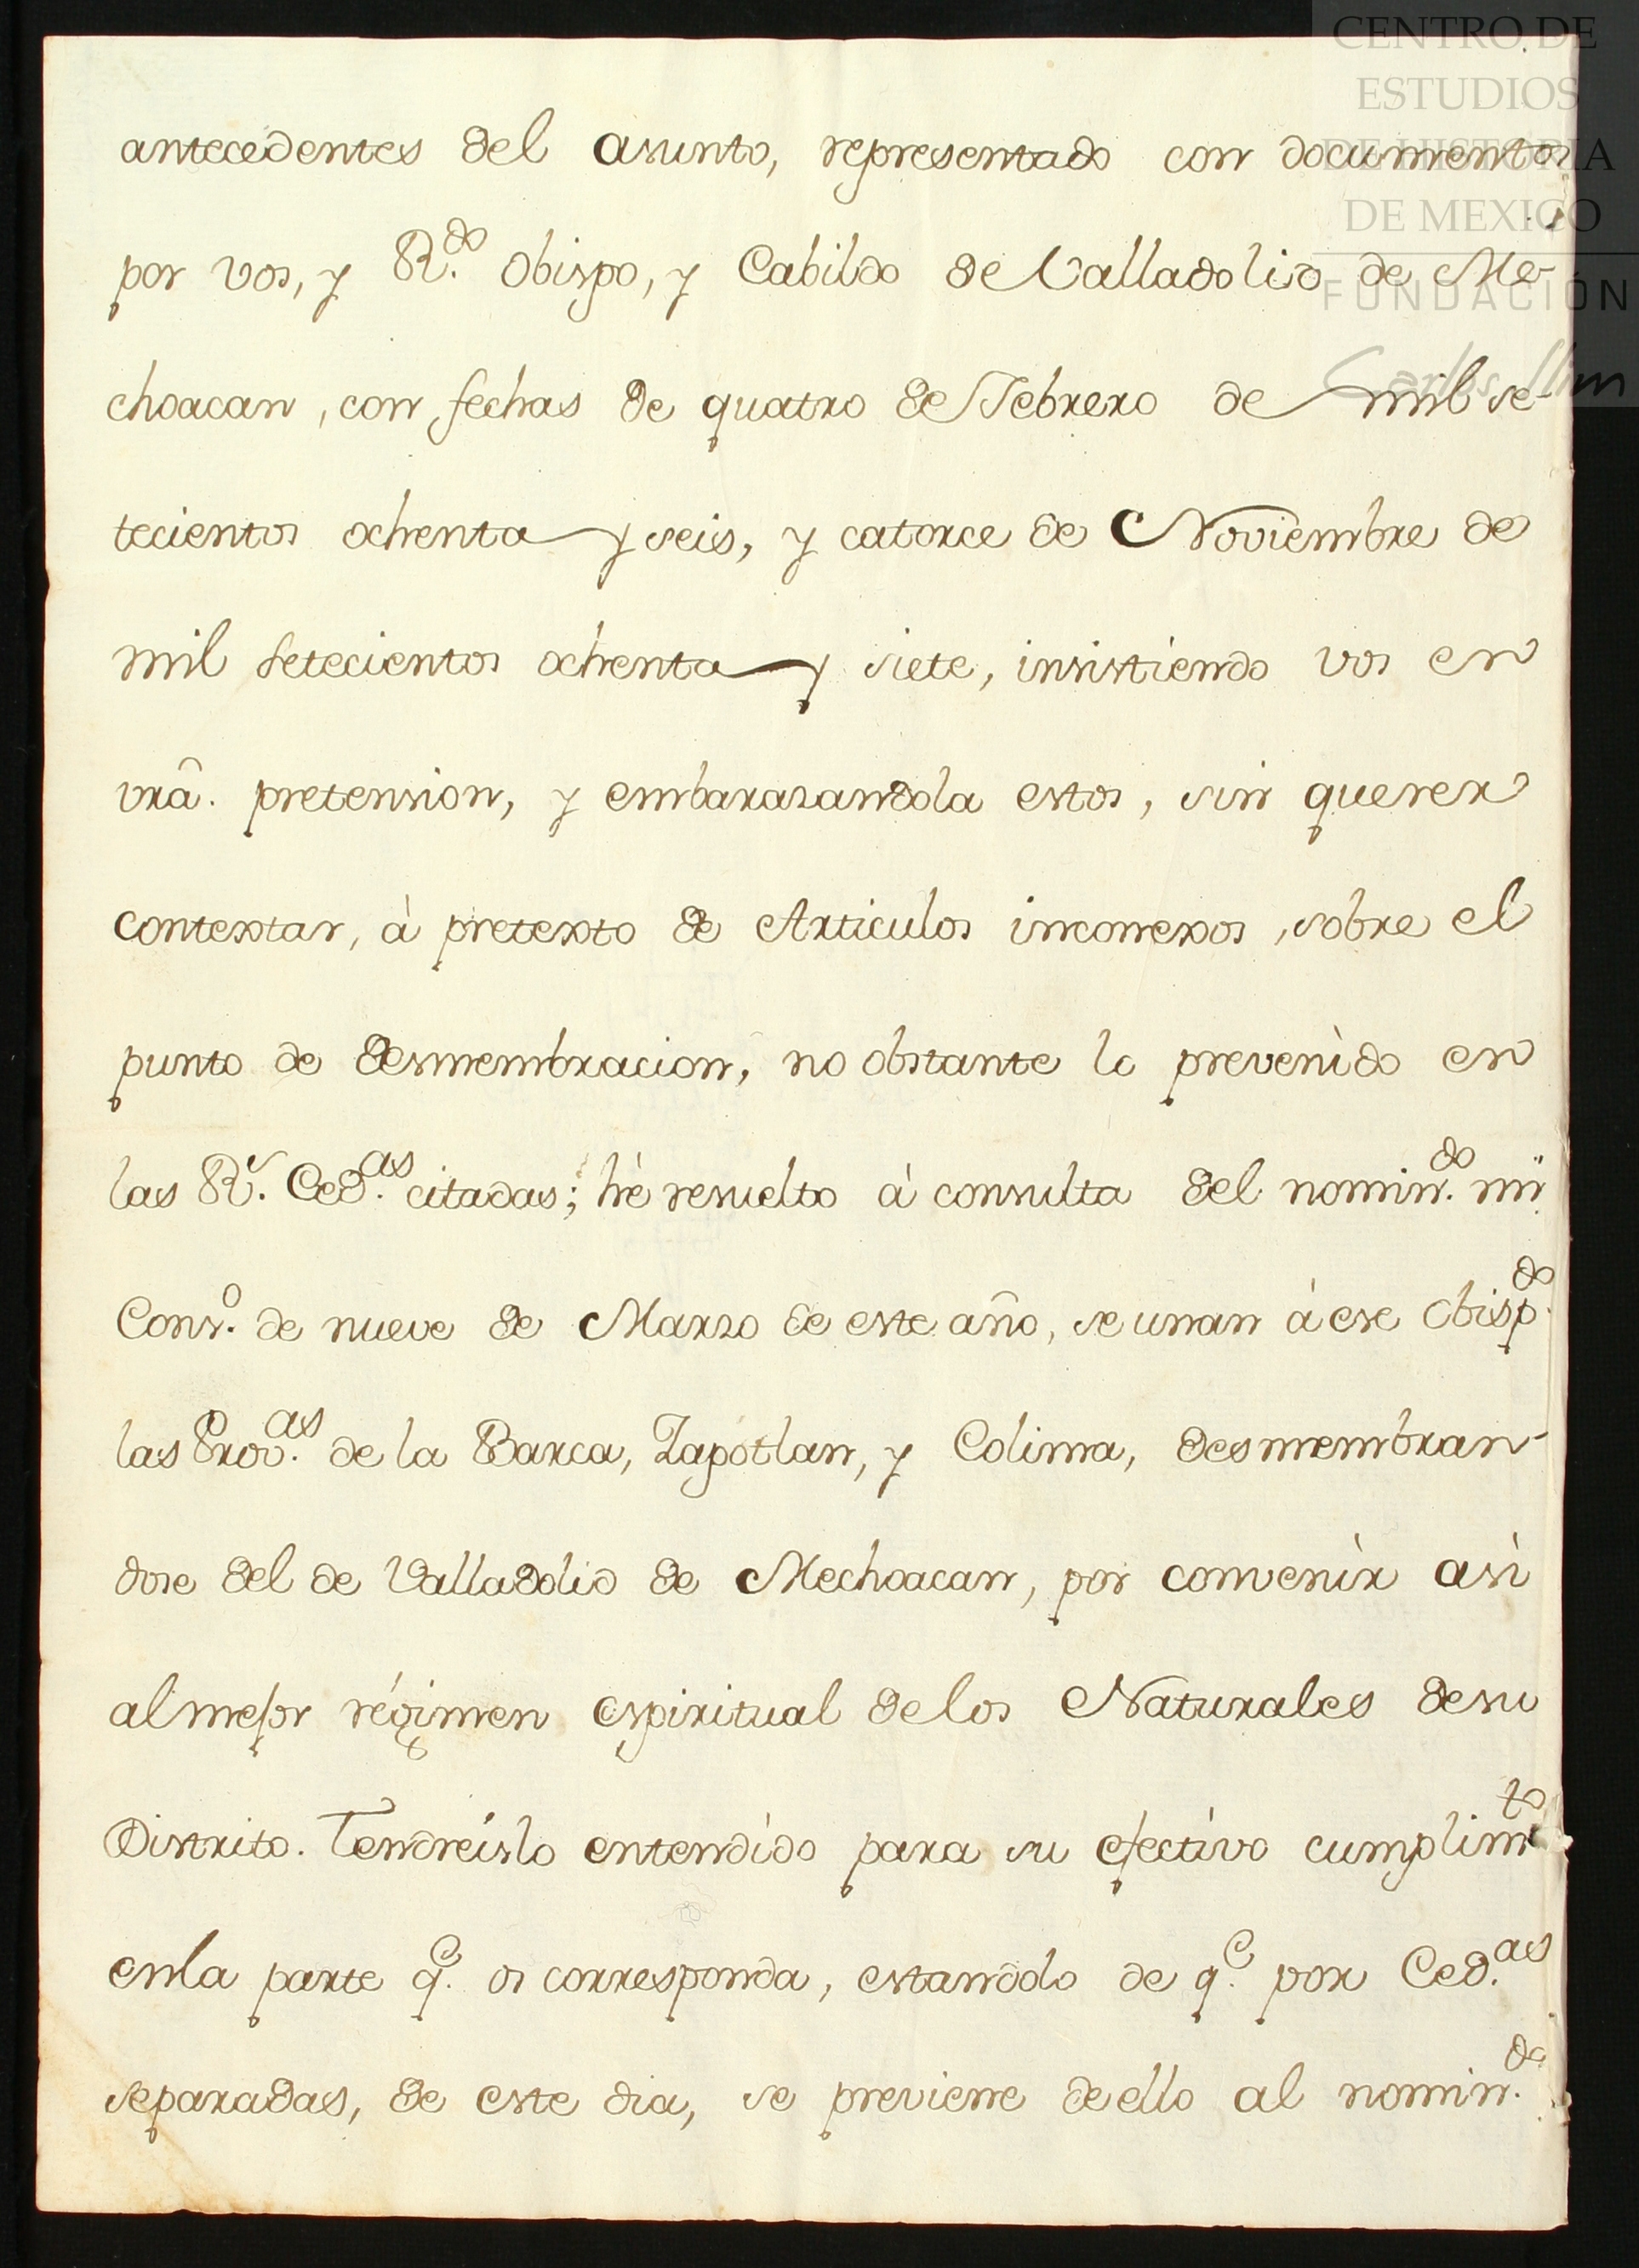 CENTRO DE
ESTUDIOS
DE HISTORIA
DE MEXICO
FUNDACIÓN
Carlos Slim
antecedentes del asunto, representado con documentos
por vos, y R.do Obispo, y Cabildo de Valladolid de Me-
choacan, con fechas de quatro de Febrero de mil se-
tecientos ochenta y seis, y catorce de Noviembre de
mil setecientos ochenta y siete, insistiendo vos en
vrâ. pretension, y embarazandola estos, sin querer
contextar, à pretexto de Articulos inconexos, sobre el
punto de desmembracion, no obstante lo prevenìdo en
las R.s Ced.as citadas; hè resuelto à consulta del nomin.do mi
Cons.o de nueve de Marzo de este año, se unan à ese Obisp.do
las Prov.as de la Barca, Zapotlan, y Colima, desmembran-
dose del de Valladolid de Mechoacan, por convenìr asì
al mejor régimen espiritual de los Naturales de su
Distrito. Tendreíslo entendído para su efectívo cumplim.to
en la parte q.e os corresponda, estandolo de q.e por Ced.as
separadas, de este dia, se previene de ello al nomin.do